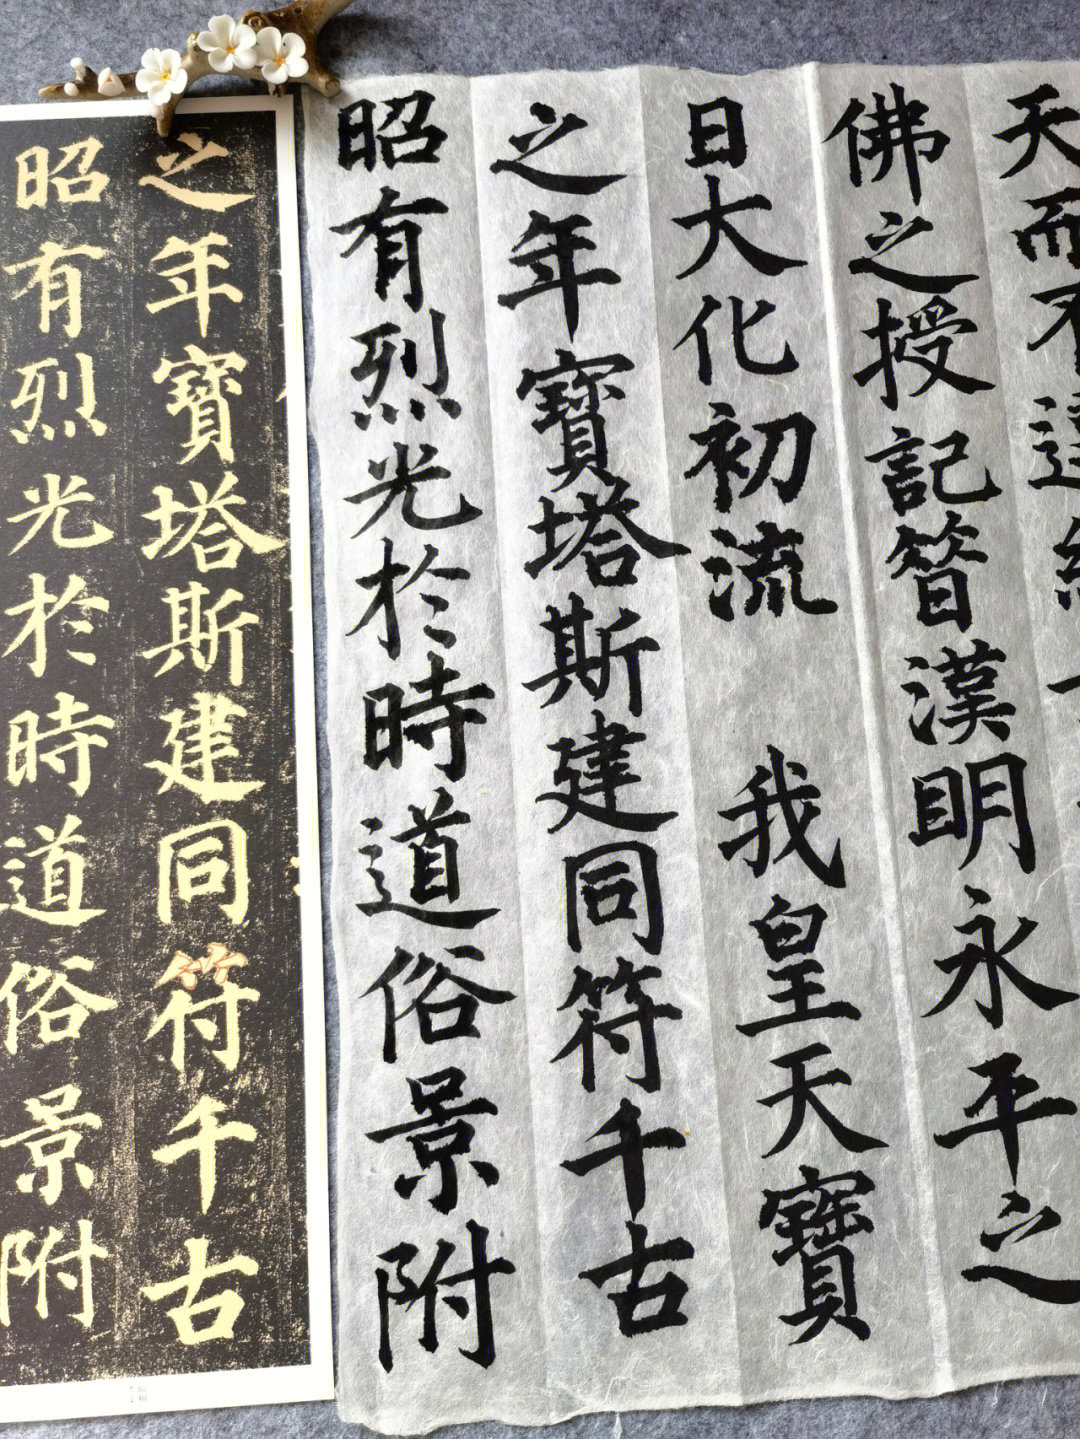 天而不達
佛之授記昔漢明永平之
日大化初流 我皇天寶
之年寶塔斯建同符千古
昭有烈光於時道俗景附
之年寶塔斯建同符千古
昭有烈光於時道俗景附